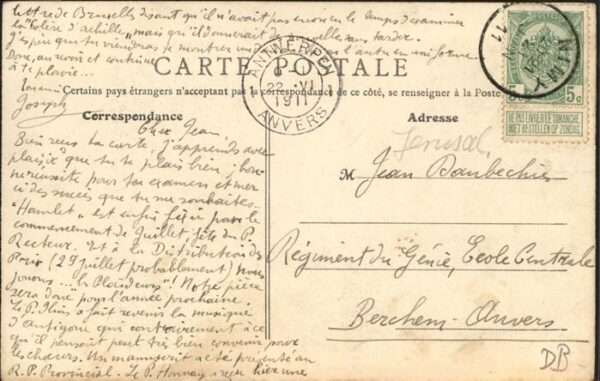 lettre de Bruxelles disant qu'il n'avait pas encore eu le temps d'examiner
la "Colère d'Achille", mais qu'il donnerait de nouvelles sans tarder.
J'espère que tu viendras te montrer un de ces jours en uniforme
Donc, au revoir et continue
à te plaire...
Joseph
ANTWERPEN
22 VI
1911
ANVERS
NIMY
11
5c 5c
NE PAS LIVRER LE DIMANCHE
NIET BESTELLEN OP ZONDAG
CARTE POSTALE
Certains pays étrangers n'acceptant pas la correspondance de ce côté, se renseigner à la Poste.
Correspondance
Adresse
Cher Jean
Bien reçu ta carte, j'apprends avec
plaisir que tu te plais bien, bonne
réussite pour ton examen et merci
des succès que tu me souhaites.
"Hamlet" est enfin fixé pour le
commencement de Juillet fête du P.
Recteur. Et à la Distribution des
Prix (29 Juillet probablement) nous
jouons ... "les Plaideurs"! Notre pièce
sera donc pour l'année prochaine.
Le P. a fait revenir la musique
d'Antigone qui contrairement à ce
qu'il pensait peut très bien convenir pour
les chœurs. Un manuscrit a été présenté au
R. P. Provincial. Le P. a reçu hier une
Jerusal.
M Jean Banbechies
Régiment du Génie, Ecole Centrale
Berchem-Anvers
DB